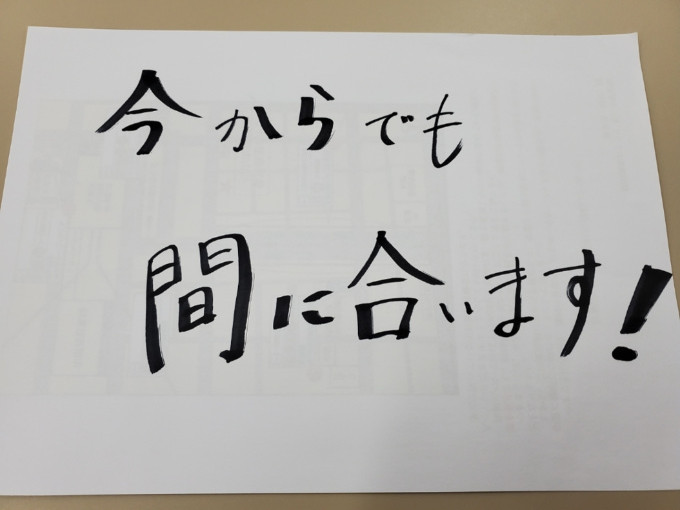 今からでも
間に合います!